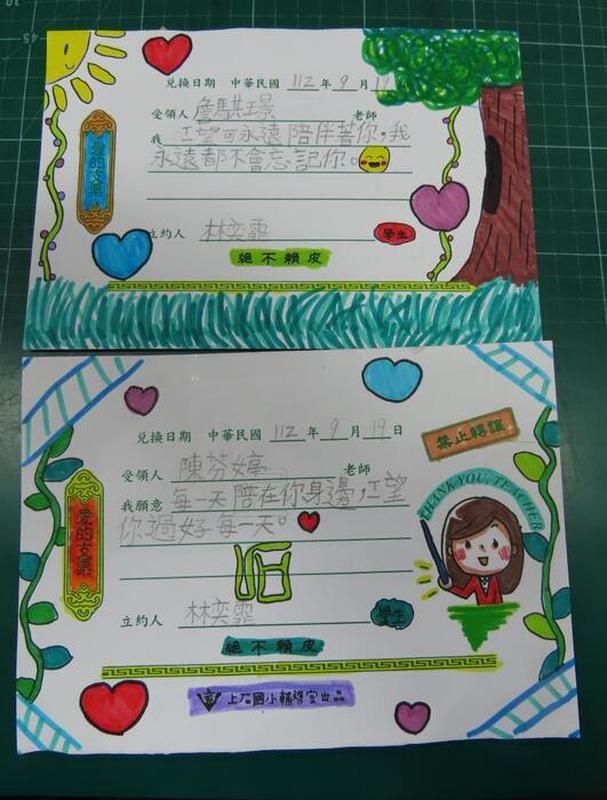 兌換日期 中華民國 112 年 9 月 19 日
受領人 詹騏璟 老師
我 希望可永遠陪伴著你,我
永遠都不會忘記你。
愛的支票
立約人 林奕霏 學生
絕不賴皮
兌換日期 中華民國 112 年 9 月 19 日
禁止轉讓
受領人 陳芬婷 老師
我願意 每一天陪在你身邊,希望
你過好每一天。
THANK YOU, TEACHER
愛的支票
立約人 林奕霏 學生
絕不賴皮
上石國小輔導室出品